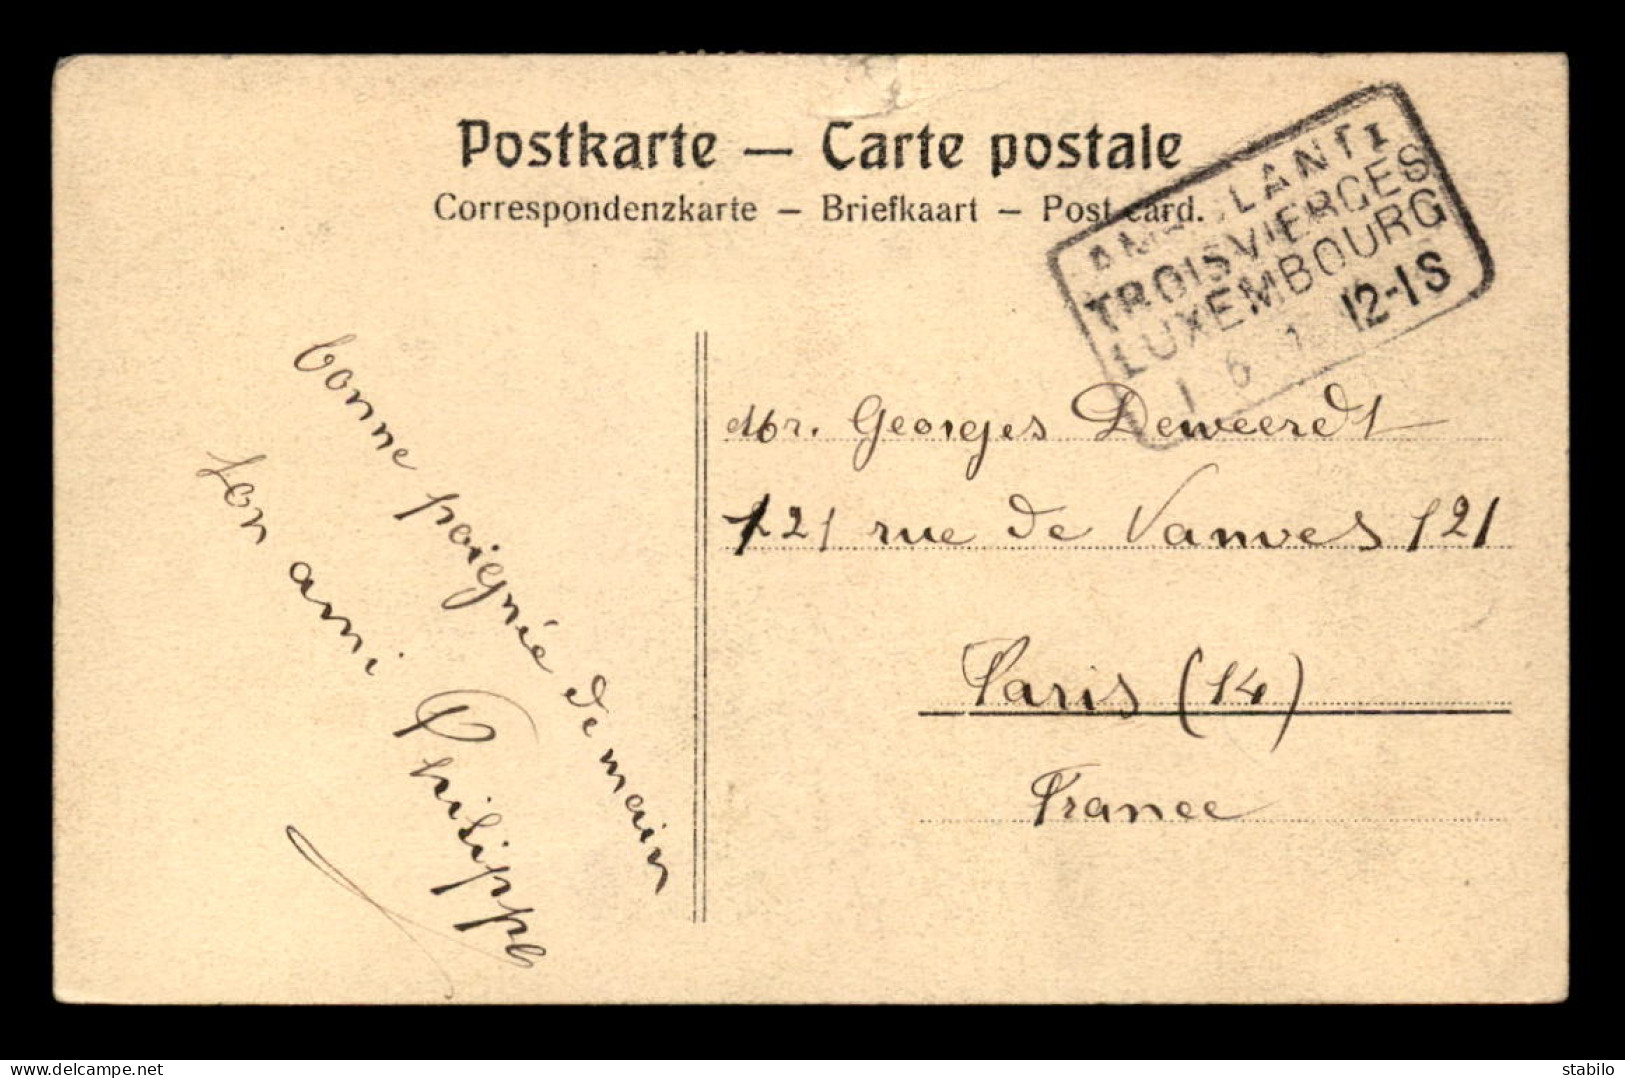 Postkarte — Carte postale
Correspondenzkarte – Briefkaart – Post card.
AMBULANT I
TROISVIERGES
LUXEMBOURG
12-1S
bonne poignée de main
ton ami Philippe
Mr. Georges Deweerdt
121 rue de Vanves 121
Paris (14)
France
www.delcampe.net
stabilo